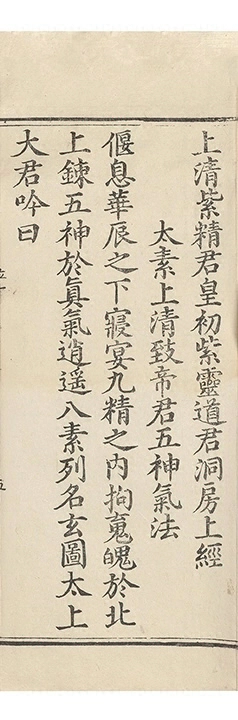 上清紫精君皇初紫靈道君洞房上經
太素上清致帝君五神氣法
偃息華辰之下寢宴九精之内拘䰟魄於北
上鍊五神於真氣逍遥八素列名玄圖太上
大君吟曰
五